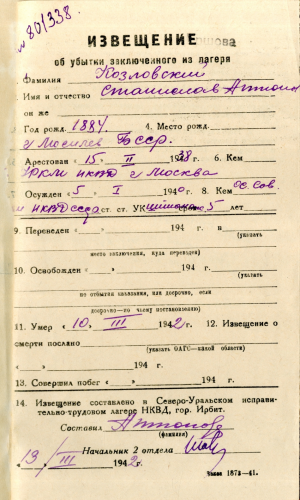 № 801338.
ИЗВЕЩЕНИЕ
об убытии заключенного из лагеря
Фамилия Козловский
Имя и отчество Станислав Антон
он же
Год рожд. 1884 4. Место рожд.
г Могилев БССР.
Арестован « 15 » II 1938 6. Кем
УРКМ НКВД г Москва
Осужден « 5 » I 1940 г. 8. Кем Ос. Сов.
НКВД ссср ст. ст. УК шпионаж 5 лет
9. Переведен « » 194 г. в
(указать
место заключения, куда переведен)
10. Освобожден « » 194 г.
(указать
по отбытии наказания, или досрочно, если
досрочно—по чьему постановлению)
11. Умер « 10 » III 1942 г. 12. Извещение о
смерти послано
(указать ОАГС—какой области)
13. Совершил побег « » 194 г.
14. Извещение составлено в Северо-Уральском исправи-
тельно-трудовом лагере НКВД, гор. Ирбит.
Составил Антонова
(фамилия)
Начальник 2 отдела
« 19 » III 1942 г.
Заказ 1873—41.